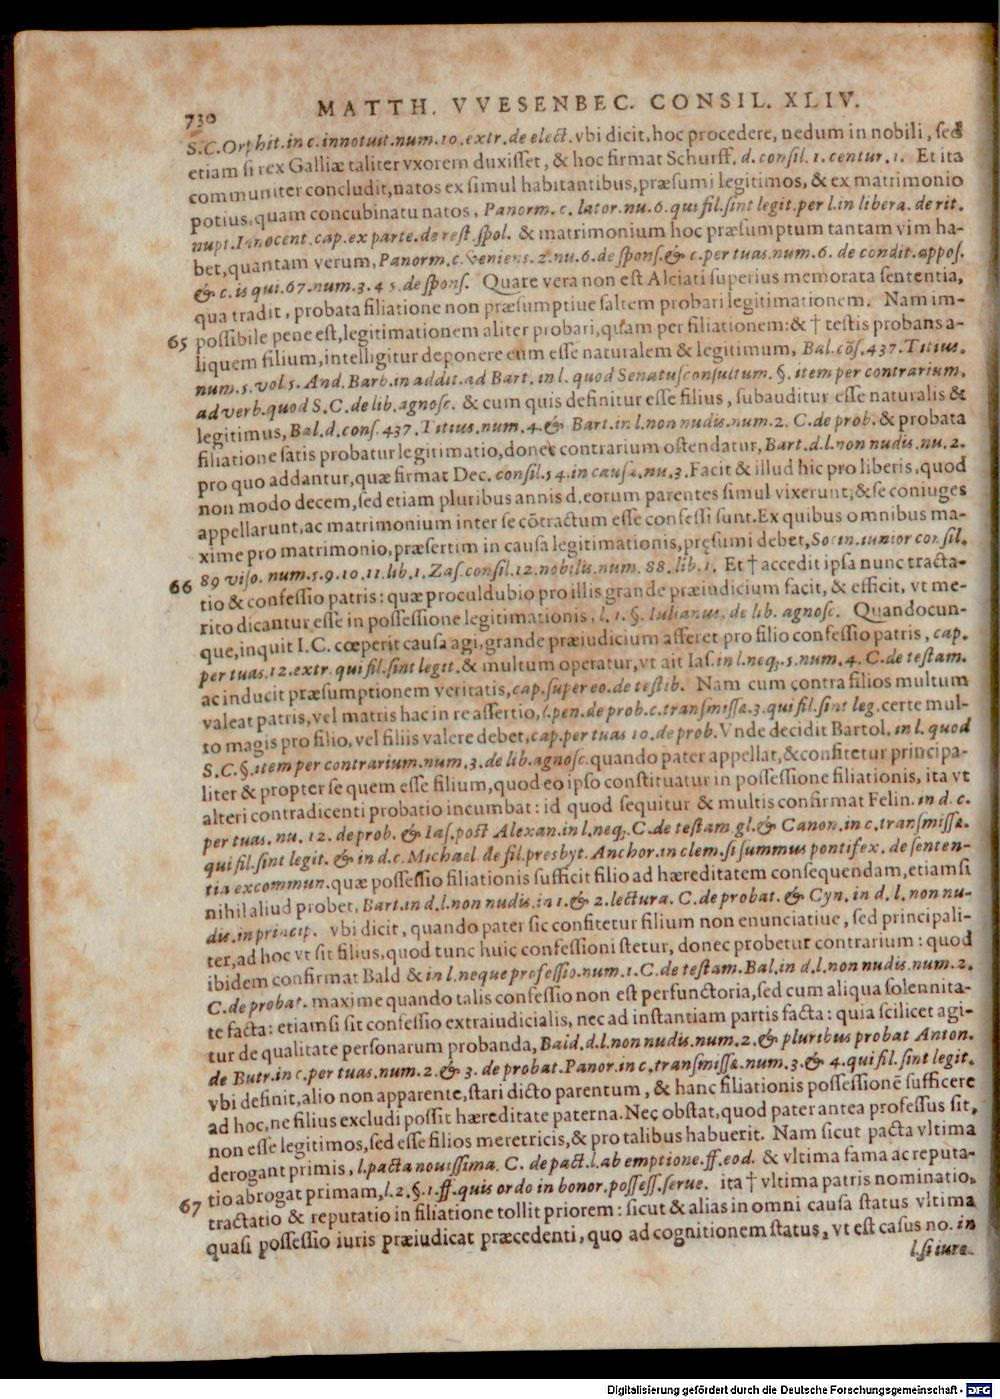 730 MATTH. VVESENBEC. CONSIL. XLIV.
S.C. Orphit. in c. innotuit. num. 10. extr. de elect. vbi dicit, hoc procedere, nedum in nobili, sed
etiam si rex Galliæ taliter vxorem duxisset, & hoc firmat Schurff. d. consil. 1. centur. 1. Et ita
communiter concludit, natos ex simul habitantibus, præsumi legitimos, & ex matrimonio
potius, quam concubinatu natos, Panorm. c. lator. nu. 6. qui fil. sint legit. per l. in libera. de rit.
nupt. Innocent. cap. ex parte. de rest. spol. & matrimonium hoc præsumptum tantam vim ha-
bet, quantam verum, Panorm. c. veniens. 2. nu. 6. de spons. & c. per tuas. num. 6. de condit. appos.
& c. is qui. 67. num. 3. 4 5. de spons. Quare vera non est Alciati superius memorata sententia,
qua tradit, probata filiatione non præsumptiue saltem probari legitimationem. Nam im-
65 possibile pene est, legitimationem aliter probari, quam per filiationem: & † testis probans a-
liquem filium, intelligitur deponere eum esse naturalem & legitimum, Bal. cõs. 437. Titius.
num. 5. vol 5. And. Barb. in addit. ad Bart. in l. quod Senatusconsultum. §. item per contrarium.
ad verb. quod S.C. de lib. agnosc. & cum quis definitur esse filius, subauditur esse naturalis &
legitimus, Bal. d. cons. 437. Titius. num. 4. & Bart. in l. non nudis. num. 2. C. de prob. & probata
filiatione satis probatur legitimatio, donec contrarium ostendatur, Bart. d. l. non nudis. nu. 2.
pro quo addantur, quæ firmat Dec. consil. 54. in causa. nu. 3. Facit & illud hic pro liberis, quod
non modo decem, sed etiam pluribus annis d. eorum parentes simul vixerunt, & se coniuges
appellarunt, ac matrimonium inter se cõtractum esse confessi sunt. Ex quibus omnibus ma-
xime pro matrimonio, præsertim in causa legitimationis, pręsumi debet, Socin. iunior consil.
66 89 viso. num. 5. 9. 10. 11. lib. 1. Zas. consil. 12. nobilis. num. 88. lib. 1. Et † accedit ipsa nunc tracta-
tio & confessio patris: quæ proculdubio pro illis grande præiudicium facit, & efficit, vt me-
rito dicantur esse in possessione legitimationis, l. 1. §. Iulianus. de lib. agnosc. Quandocun-
que, inquit I.C. cœperit causa agi, grande præiudicium afferet pro filio confessio patris, cap.
per tuas. 12. extr. qui fil. sint legit. & multum operatur, vt ait Ias. in l. neq;. 5. num. 4. C. de testam.
ac inducit præsumptionem veritatis, cap. super eo. de testib. Nam cum contra filios multum
valeat patris, vel matris hac in re assertio, l. pen. de prob. c. transmissæ. 3. qui fil. sint leg. certe mul-
to magis pro filio, vel filiis valere debet, cap. per tuas 10. de prob. Vnde decidit Bartol. in l. quod
S.C. §. item per contrarium. num. 3. de lib. agnosc. quando pater appellat, & confitetur principa-
liter & propter se quem esse filium, quod eo ipso constituatur in possessione filiationis, ita vt
alteri contradicenti probatio incumbat: id quod sequitur & multis confirmat Felin. in d. c.
per tuas. nu. 12. de prob. & Ias. post Alexan. in l. neq;. C. de testam. gl. & Canon. in c. transmissæ.
qui fil. sint legit. & in d. c. Michael de fil. presbyt. Anchor. in clem. si summus pontifex. de senten-
tia excommun. quæ possessio filiationis sufficit filio ad hæreditatem consequendam, etiamsi
nihil aliud probet, Bart. in d. l. non nudis. in 1. & 2. lectura. C. de probat. & Cyn. in d. l. non nu-
dis. in princip. vbi dicit, quando pater sic confitetur filium non enunciatiue, sed principali-
ter, ad hoc vt sit filius, quod tunc huic confessioni stetur, donec probetur contrarium: quod
ibidem confirmat Bald & in l. neque professio. num. 1. C. de testam. Bal. in d. l. non nudis. num. 2.
C. de probat. maxime quando talis confessio non est perfunctoria, sed cum aliqua solennita-
te facta: etiamsi sit confessio extraiudicialis, nec ad instantiam partis facta: quia scilicet agi-
tur de qualitate personarum probanda, Bald. d. l. non nudis. num. 2. & pluribus probat Anton.
de Butr. in c. per tuas. num. 2. & 3. de probat. Panor. in c. transmissæ. num. 3. & 4. qui fil. sint legit.
vbi definit, alio non apparente, stari dicto parentum, & hanc filiationis possessionẽ sufficere
ad hoc, ne filius excludi possit hæreditate paterna. Nec obstat, quod pater antea professus sit,
non esse legitimos, sed esse filios meretricis, & pro talibus habuerit. Nam sicut pacta vltima
derogant primis, l. pacta nouissima. C. de pact. l. ab emptione. ff. eod. & vltima fama ac reputa-
67 tio abrogat primam, l. 2. §. 1. ff. quis ordo in bonor. possess. serue. ita † vltima patris nominatio,
tractatio & reputatio in filiatione tollit priorem: sicut & alias in omni causa status vltima
quasi possessio iuris præiudicat præcedenti, quo ad cognitionem status, vt est casus no. in
l. si iure
Digitalisierung gefördert durch die Deutsche Forschungsgemeinschaft - DFG